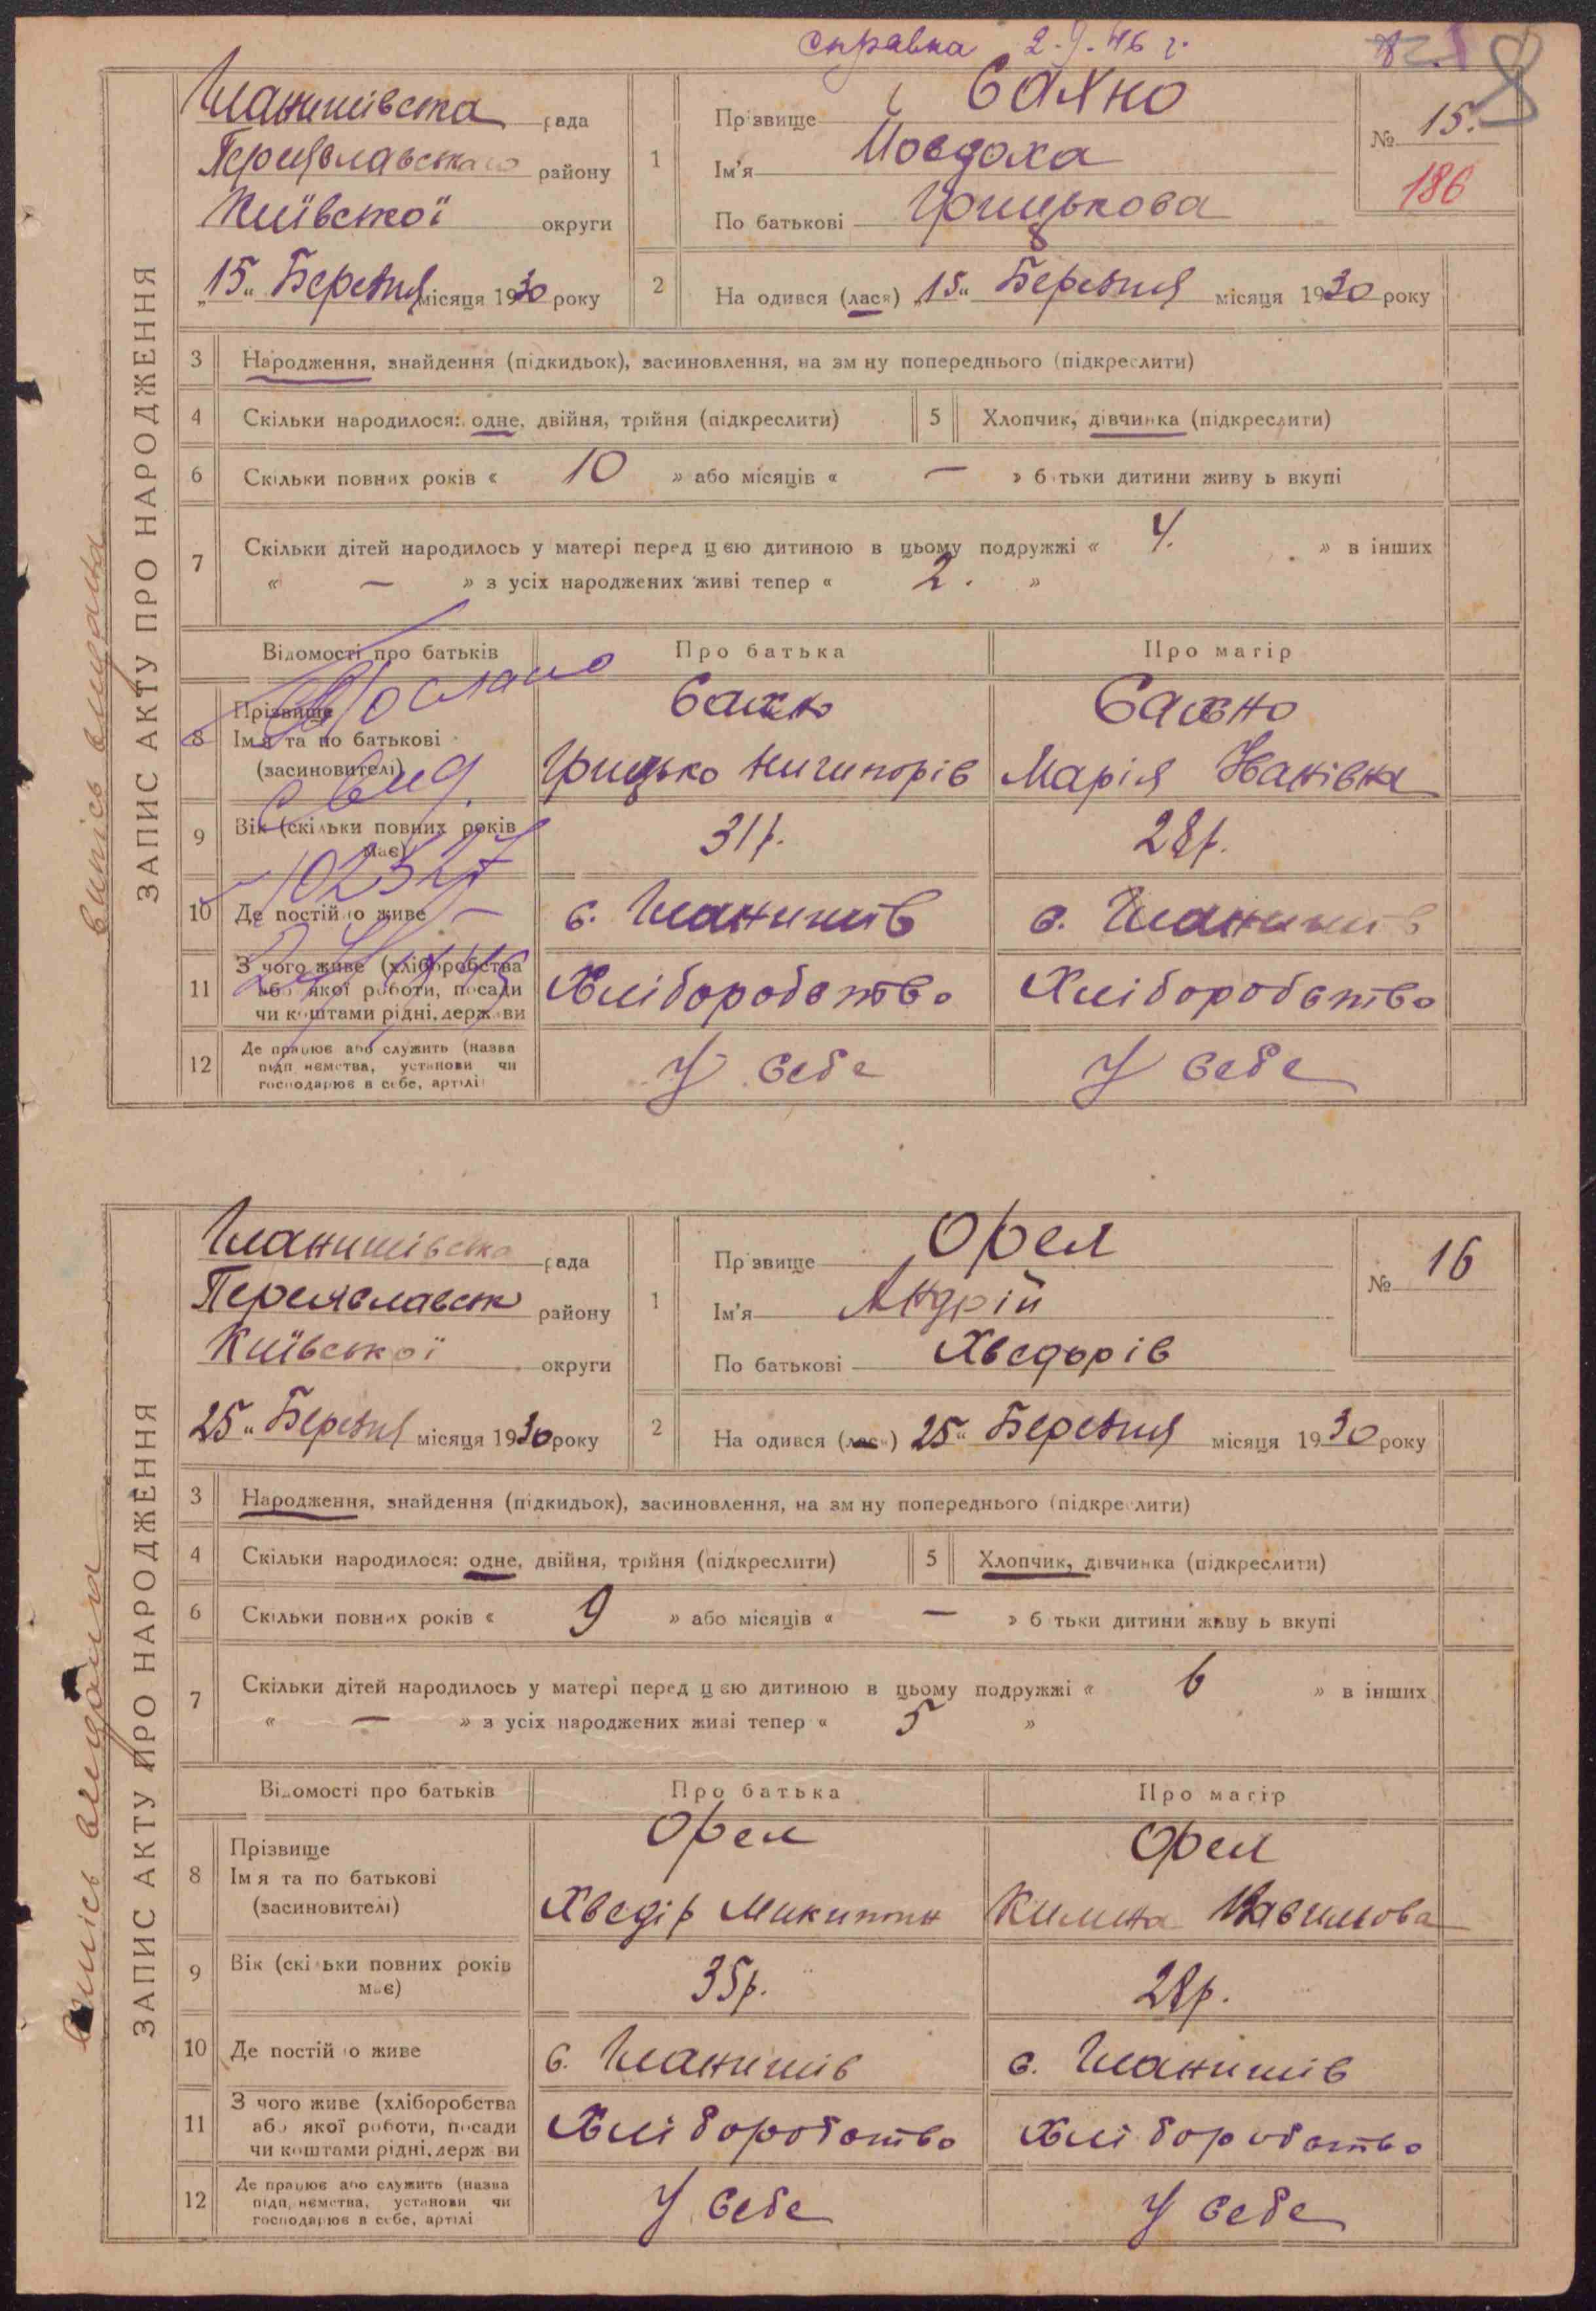 справка 2.9.46 г.
8
ЗАПИС АКТУ ПРО НАРОДЖЕННЯ
Гланишівська рада
Переяславського району
Київської округи
„15“ Березня місяця 1930 року
1
Прізвище Сахно
Ім'я Мовдоха
По батькові Грицькова
№ 15.
186
2
На одився (лася) „15“ Березня місяця 1930 року
3 Народження, знайдення (підкидьок), засиновлення, на зм ну попереднього (підкреслити)
4 Скільки народилося: одне, двійня, трійня (підкреслити)
5 Хлопчик, дівчинка (підкреслити)
6 Скільки повних років « 10 » або місяців « — » б тьки дитини живу ь вкупі
7 Скільки дітей народилось у матері перед ц єю дитиною в цьому подружжі « 4. » в інших
« — » з усіх народжених живі тепер « 2. »
Відомості про батьків Про батька Про матір
8 Прізвище
Ім я та по батькові
(засиновителі)
Сахно
Грицько Ничипорів
Сахно
Марія Іванівна
Послано
Свид.
102327
9 Вік (скільки повних років має) 31р. 28р.
10 Де постій о живе с. Гланишів с. Гланишів
11 З чого живе (хліборобства
або якої роботи, посади
чи коштами рідні, держ ви
Хліборобство Хліборобство
12 Де працює або служить (назва
підп иємства, установи чи
господарює в себе, артілі
У себе У себе
ЗАПИС АКТУ ПРО НАРОДЖЕННЯ
Гланишівська рада
Переяславськ району
Київської округи
25“ Березня місяця 1930 року
1
Пр звище Орел
Ім'я Андрій
По батькові Хведорів
№ 16
2
На одився (лася) 25“ Березня місяця 1930 року
3 Народження, знайдення (підкидьок), засиновлення, на зм ну попереднього (підкреслити)
4 Скільки народилося: одне, двійня, трійня (підкреслити)
5 Хлопчик, дівчинка (підкреслити)
6 Скільки повних років « 9 » або місяців « — » б тьки дитини живу ь вкупі
7 Скільки дітей народилось у матері перед ц єю дитиною в цьому подружжі « 6 » в інших
« — » з усіх народжених живі тепер « 5 »
Відомості про батьків Про батька Про матір
8 Прізвище
Ім я та по батькові
(засиновителі)
Орел
Хведір Микитин
Орел
Килина
9 Вік (скільки повних років має) 35р. 28р.
10 Де постій о живе с. Гланишів с. Гланишів
11 З чого живе (хліборобства
або якої роботи, посади
чи коштами рідні, держ ви
Хліборобство Хліборобство
12 Де працює або служить (назва
підп иємства, установи чи
господарює в себе, артілі
У себе У себе